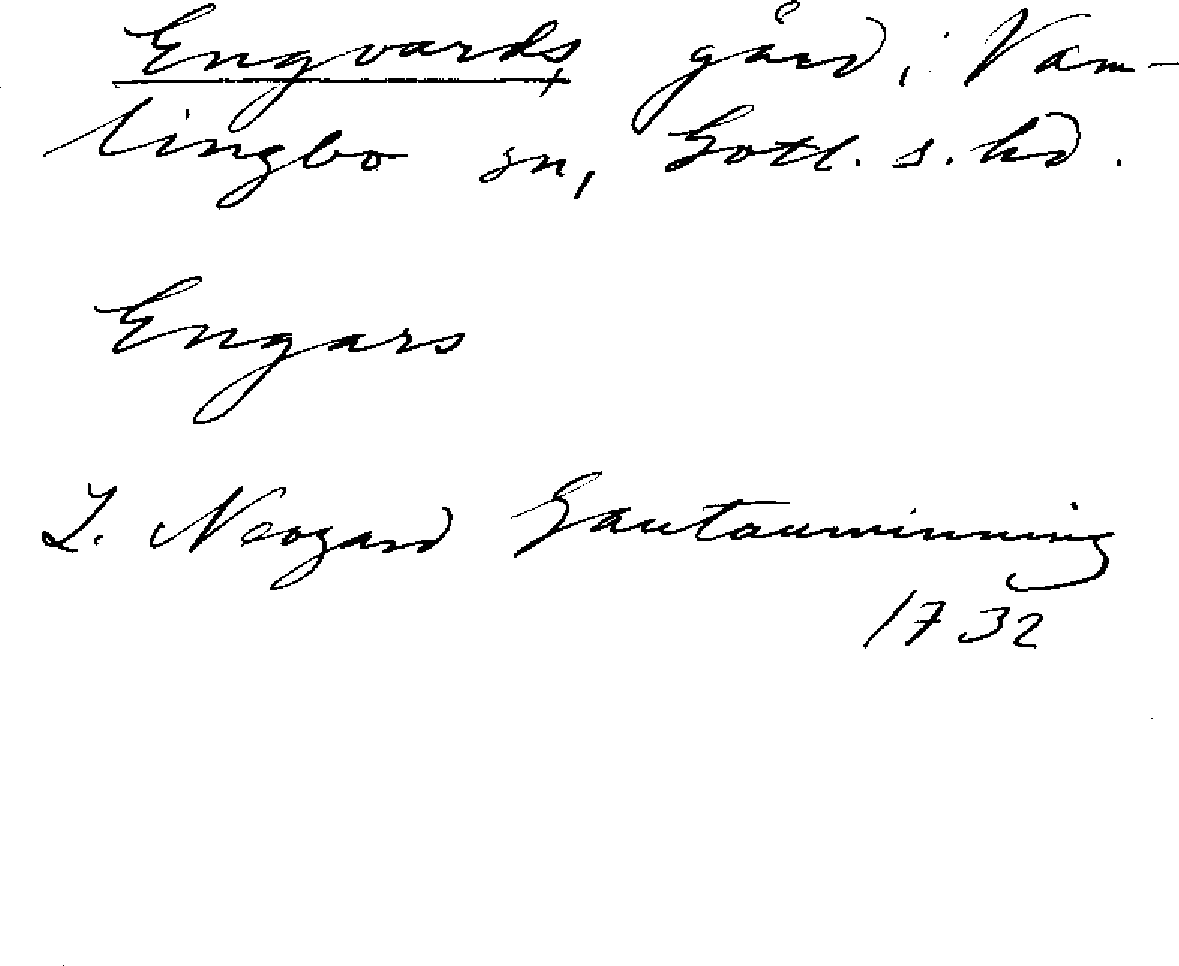 Engvards, gård, i Vam-
lingbo sn, Gotl. s. hd.
Engars
L. Neogard Gautauminning
1732